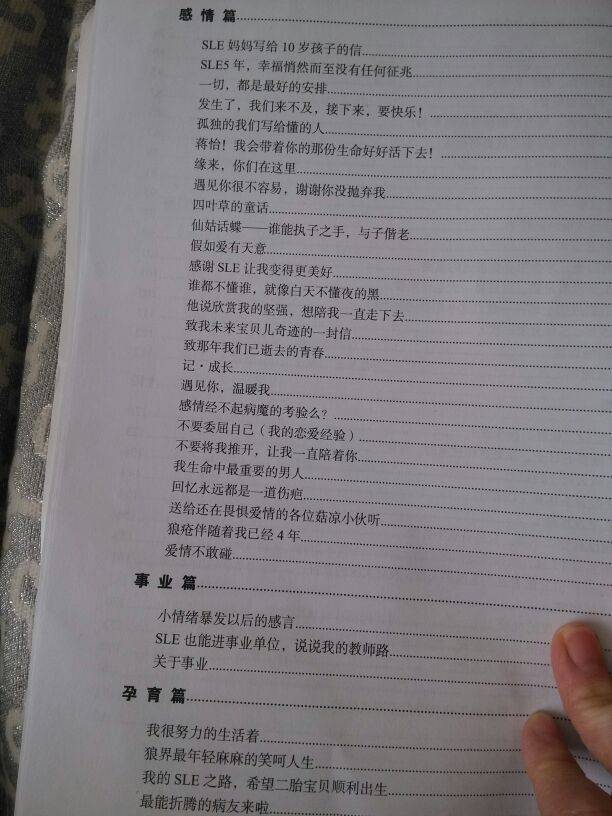 感 情 篇
SLE 妈妈写给 10 岁孩子的信
SLE5 年，幸福悄然而至没有任何征兆
一切，都是最好的安排
发生了，我们来不及，接下来，要快乐！
孤独的我们写给懂的人
蒋怡！我会带着你的那份生命好好活下去！
缘来，你们在这里
遇见你很不容易，谢谢你没抛弃我
四叶草的童话
仙姑话蝶——谁能执子之手，与子偕老
假如爱有天意
感谢 SLE 让我变得更美好
谁都不懂谁，就像白天不懂夜的黑
他说欣赏我的坚强，想陪我一直走下去
致我未来宝贝儿奇迹的一封信
致那年我们已逝去的青春
记·成长
遇见你，温暖我
感情经不起病魔的考验么？
不要委屈自己（我的恋爱经验）
不要将我推开，让我一直陪着你
我生命中最重要的男人
回忆永远都是一道伤疤
送给还在畏惧爱情的各位菇凉小伙听
狼疮伴随着我已经 4 年
爱情不敢碰
事 业 篇
小情绪暴发以后的感言
SLE 也能进事业单位，说说我的教师路
关于事业
孕 育 篇
我很努力的生活着
狼界最年轻麻麻的笑呵人生
我的 SLE 之路，希望二胎宝贝顺利出生
最能折腾的病友来啦